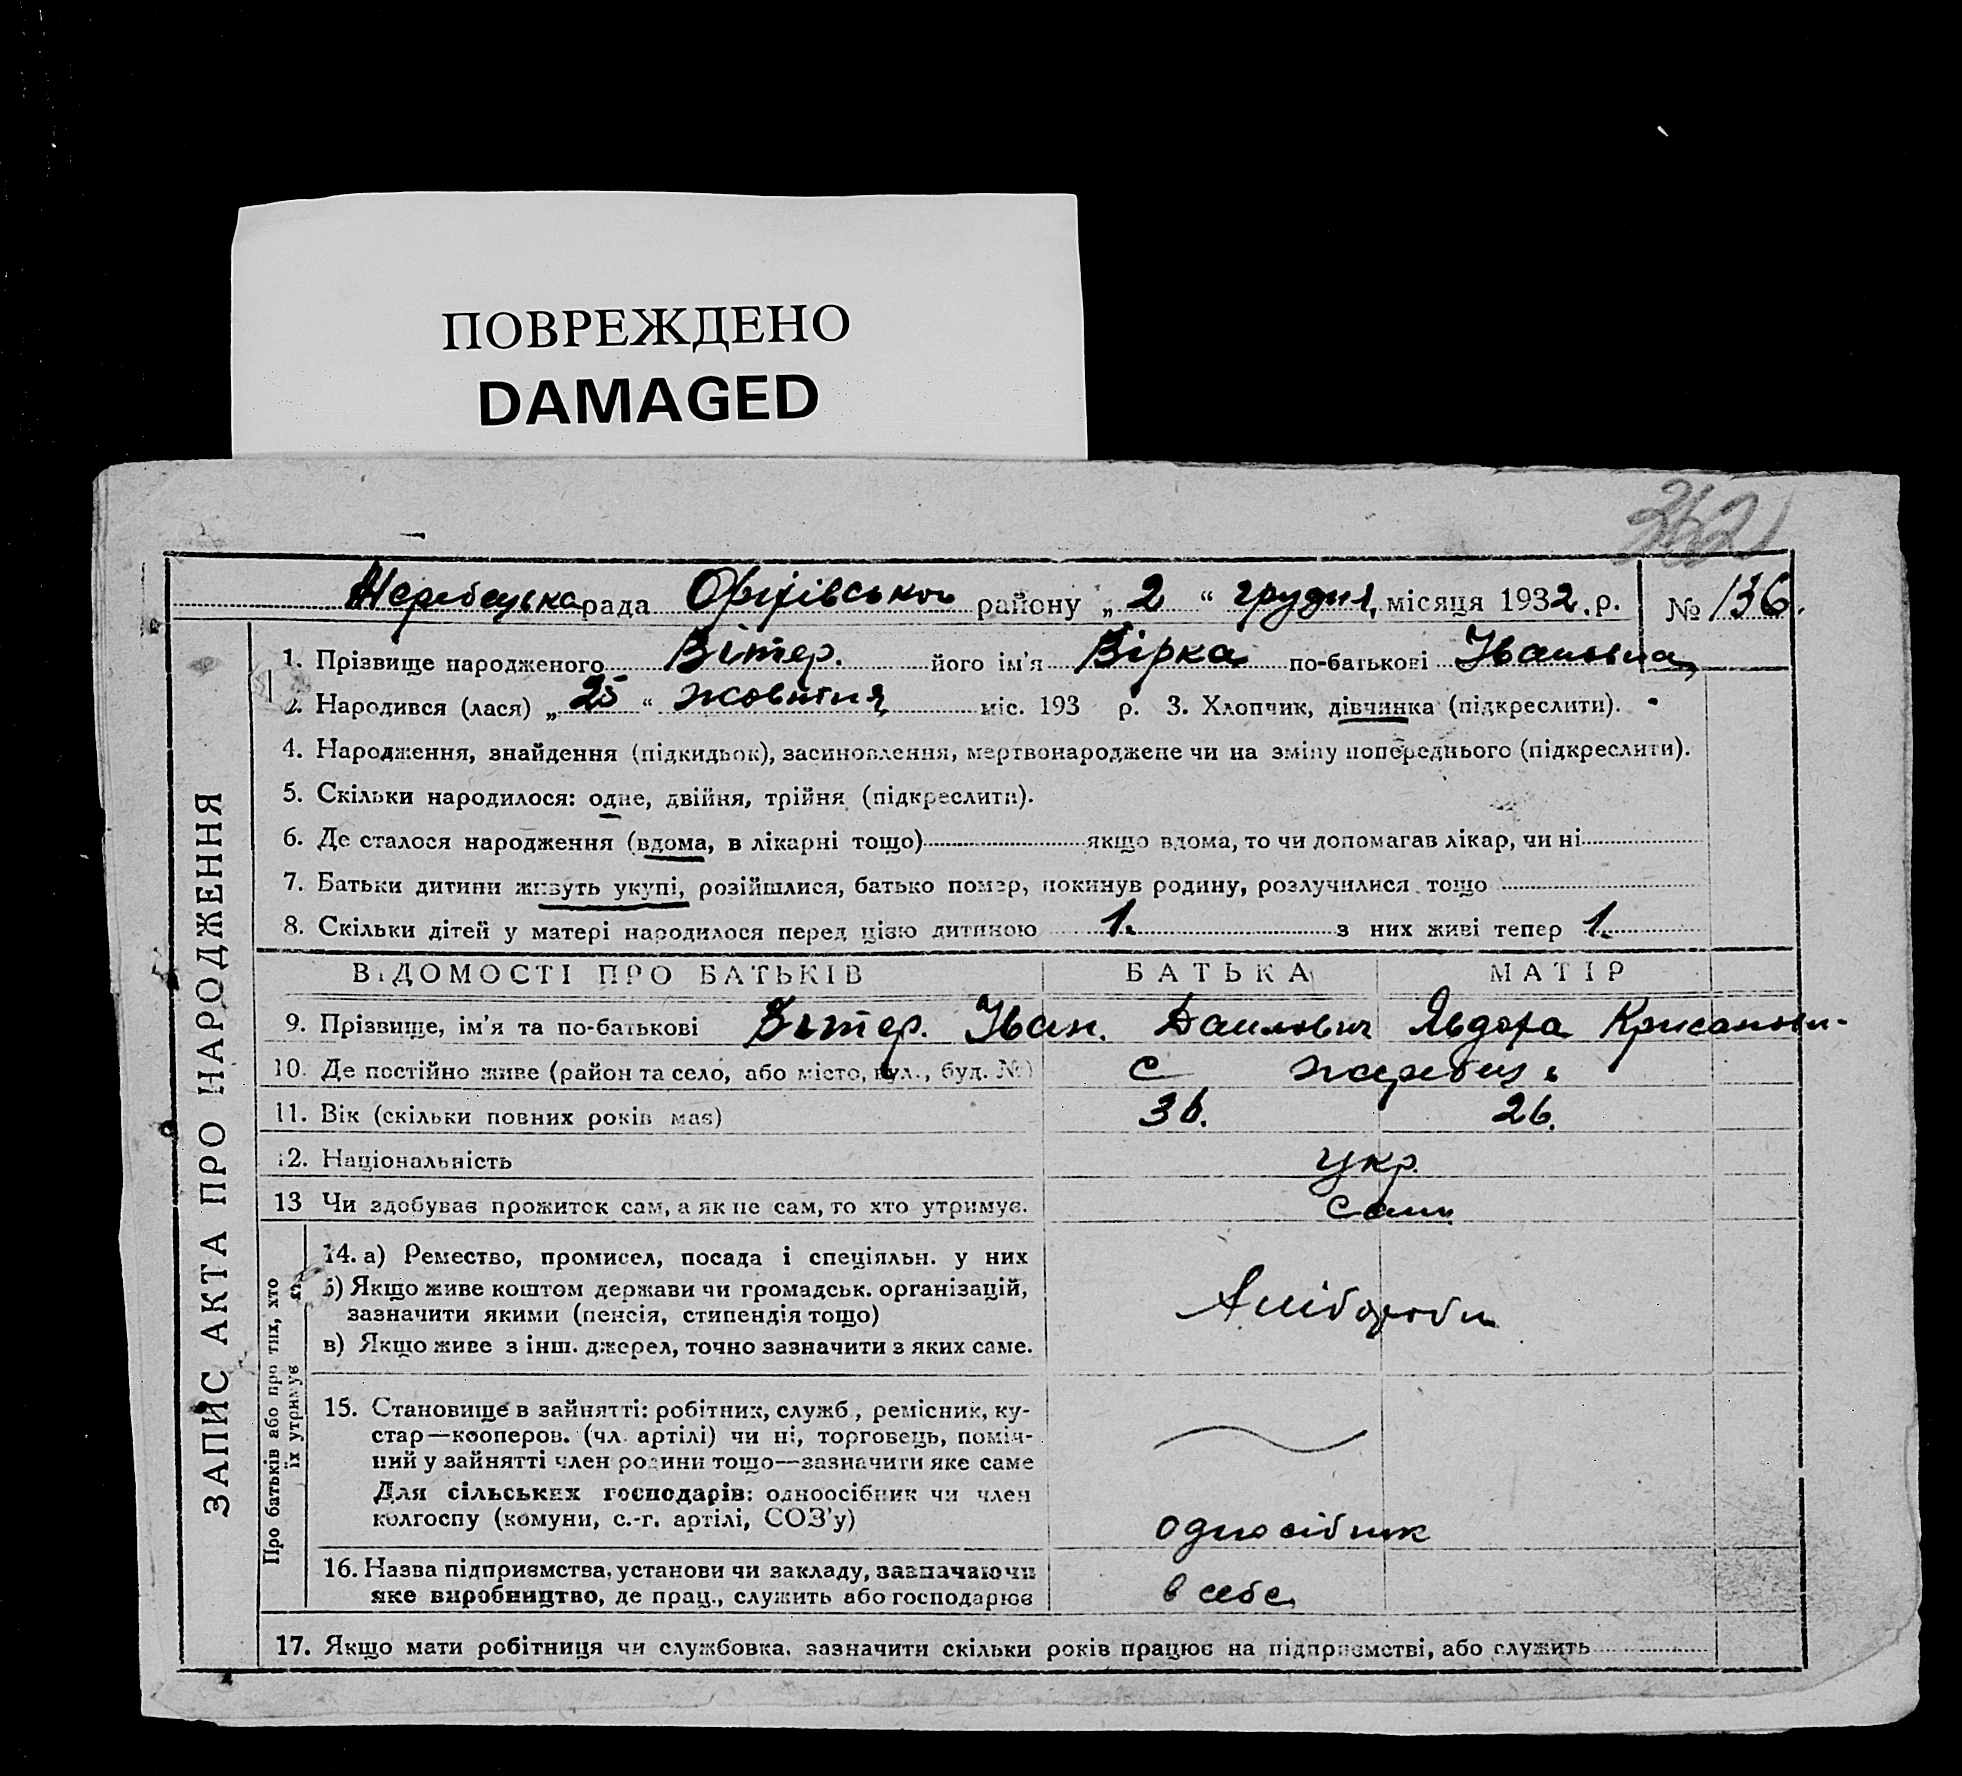 ПОВРЕЖДЕНО
DAMAGED
342
Жеребецька рада Оріхівського району „2“ грудня місяця 1932 р. № 136.
ЗАПИС АКТА ПРО НАРОДЖЕННЯ
1. Прізвище народженого Вітер. його ім'я Вірка по-батькові Івановна
2. Народився (лася) „25“ жовтня міс. 193 р. 3. Хлопчик, дівчинка (підкреслити).
4. Народження, знайдення (підкидьок), засиновлення, мертвонароджене чи на зміну попереднього (підкреслити).
5. Скільки народилося: одне, двійня, трійня (підкреслити).
6. Де сталося народження (вдома, в лікарні тощо) якщо вдома, то чи допомагав лікар, чи ні
7. Батьки дитини живуть укупі, розійшлися, батько помер, покинув родину, розлучилися тощо
8. Скільки дітей у матері народилося перед цією дитиною 1. з них живі тепер 1.
ВІДОМОСТІ ПРО БАТЬКІВ БАТЬКА МАТІР
9. Прізвище, ім'я та по-батькові Вітер. Іван. Данилович Явдоха
10. Де постійно живе (район та село, або місто, вул., буд. №) с жеребець
11. Вік (скільки повних років має) 36. 26.
12. Національність укр.
13 Чи здобував прожиток сам, а як не сам, то хто утримує. сами
Про батьків або про тих, хто їх утримує
14. а) Ремество, промисел, посада і спеціяльн. у них
б) Якщо живе коштом держави чи громадськ. організацій,
зазначити якими (пенсія, стипендія тощо)
в) Якщо живе з інш. джерел, точно зазначити з яких саме.
хлібороби
15. Становище в зайнятті: робітник, служб., ремісник, ку-
стар—кооперов. (чл. артілі) чи ні, торговець, поміч-
ний у зайнятті член родини тощо—зазначити яке саме
Для сільських господарів: одноосібник чи член
колгоспу (комуни, с.-г. артілі, СОЗ'у)
одноосібник
16. Назва підприємства, установи чи закладу, зазначаючи
яке виробництво, де прац., служить або господарює
в себе
17. Якщо мати робітниця чи службовка, зазначити скільки років працює на підприємстві, або служить